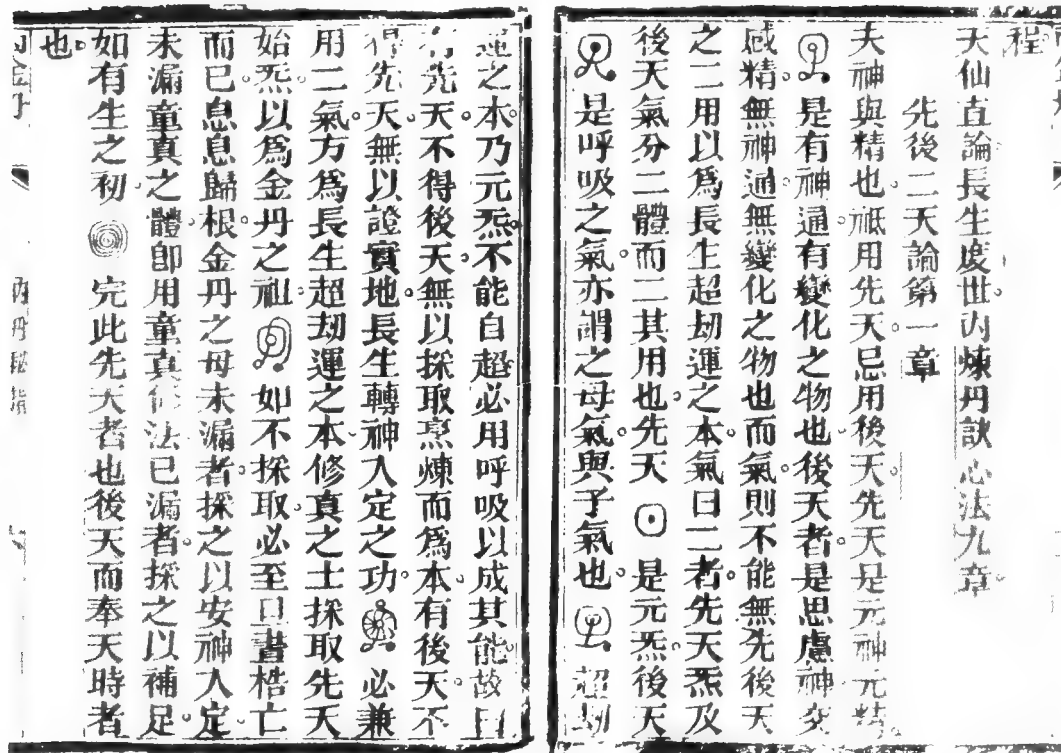 程
天仙直論長生度世內煉丹訣心法九章
先後二天論第一章
夫神與精也祗用先天忌用後天先天是元神元精
是有神通有變化之物也後天者是思慮神交
感精無神通無變化之物也而氣則不能無先後天
之二用以為長生超劫運之本氣曰二者先天炁及
後天氣分二體而二其用也先天 是元炁後天
是呼吸之氣亦謂之母氣與子氣也 超劫
運之本乃元炁不能自超必用呼吸以成其能故曰
有先天不得後天無以採取烹煉而為本有後天不
得先天無以證實地長生轉神入定之功 必兼
用二氣方為長生超劫運之本修真之士採取先天
始炁以為金丹之祖 如不採取必至旦晝梏亡
而已息息歸根金丹之母未漏者採之以安神入定
未漏童真之體即用童真修法已漏者採之以補足
如有生之初 完此先天者也後天而奉天時者
也
內丹秘指